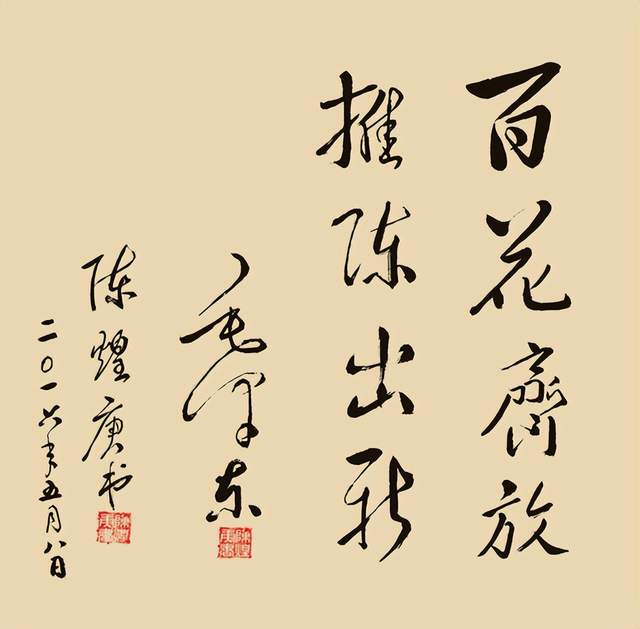 百花齊放
推陈出新
毛泽东
陈煌庚书
二〇一六年五月八日